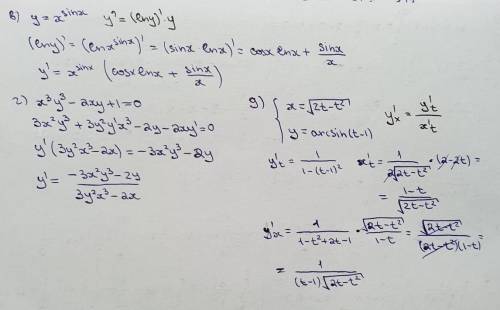 в) y = x^sinx   y' = (lny)'·y
(lny)' = (lnx^sinx)' = (sinx·lnx)' = cosx lnx + sinx/x
y' = x^sinx (cosx lnx + sinx/x)
г) x³y³ - 2xy + 1 = 0
3x²y³ + 3y²y'x³ - 2y - 2xy' = 0
y'(3y²x³ - 2x) = -3x²y³ - 2y
y' = (-3x²y³ - 2y)/(3y²x³ - 2x)
д) { x = √(2t-t²)   y'x = y't/x't
y = arcsin(t-1)
y't = 1/(1-(t-1)²)   x't = 1/(2√(2t-t²)) · (2-2t) =
= (1-t)/√(2t-t²)
y'x = 1/(1-t²+2t-1) · √(2t-t²)/(1-t) = √(2t-t²)/((2t-t²)(1-t)) =
= 1/((t-1)√(2t-t²))